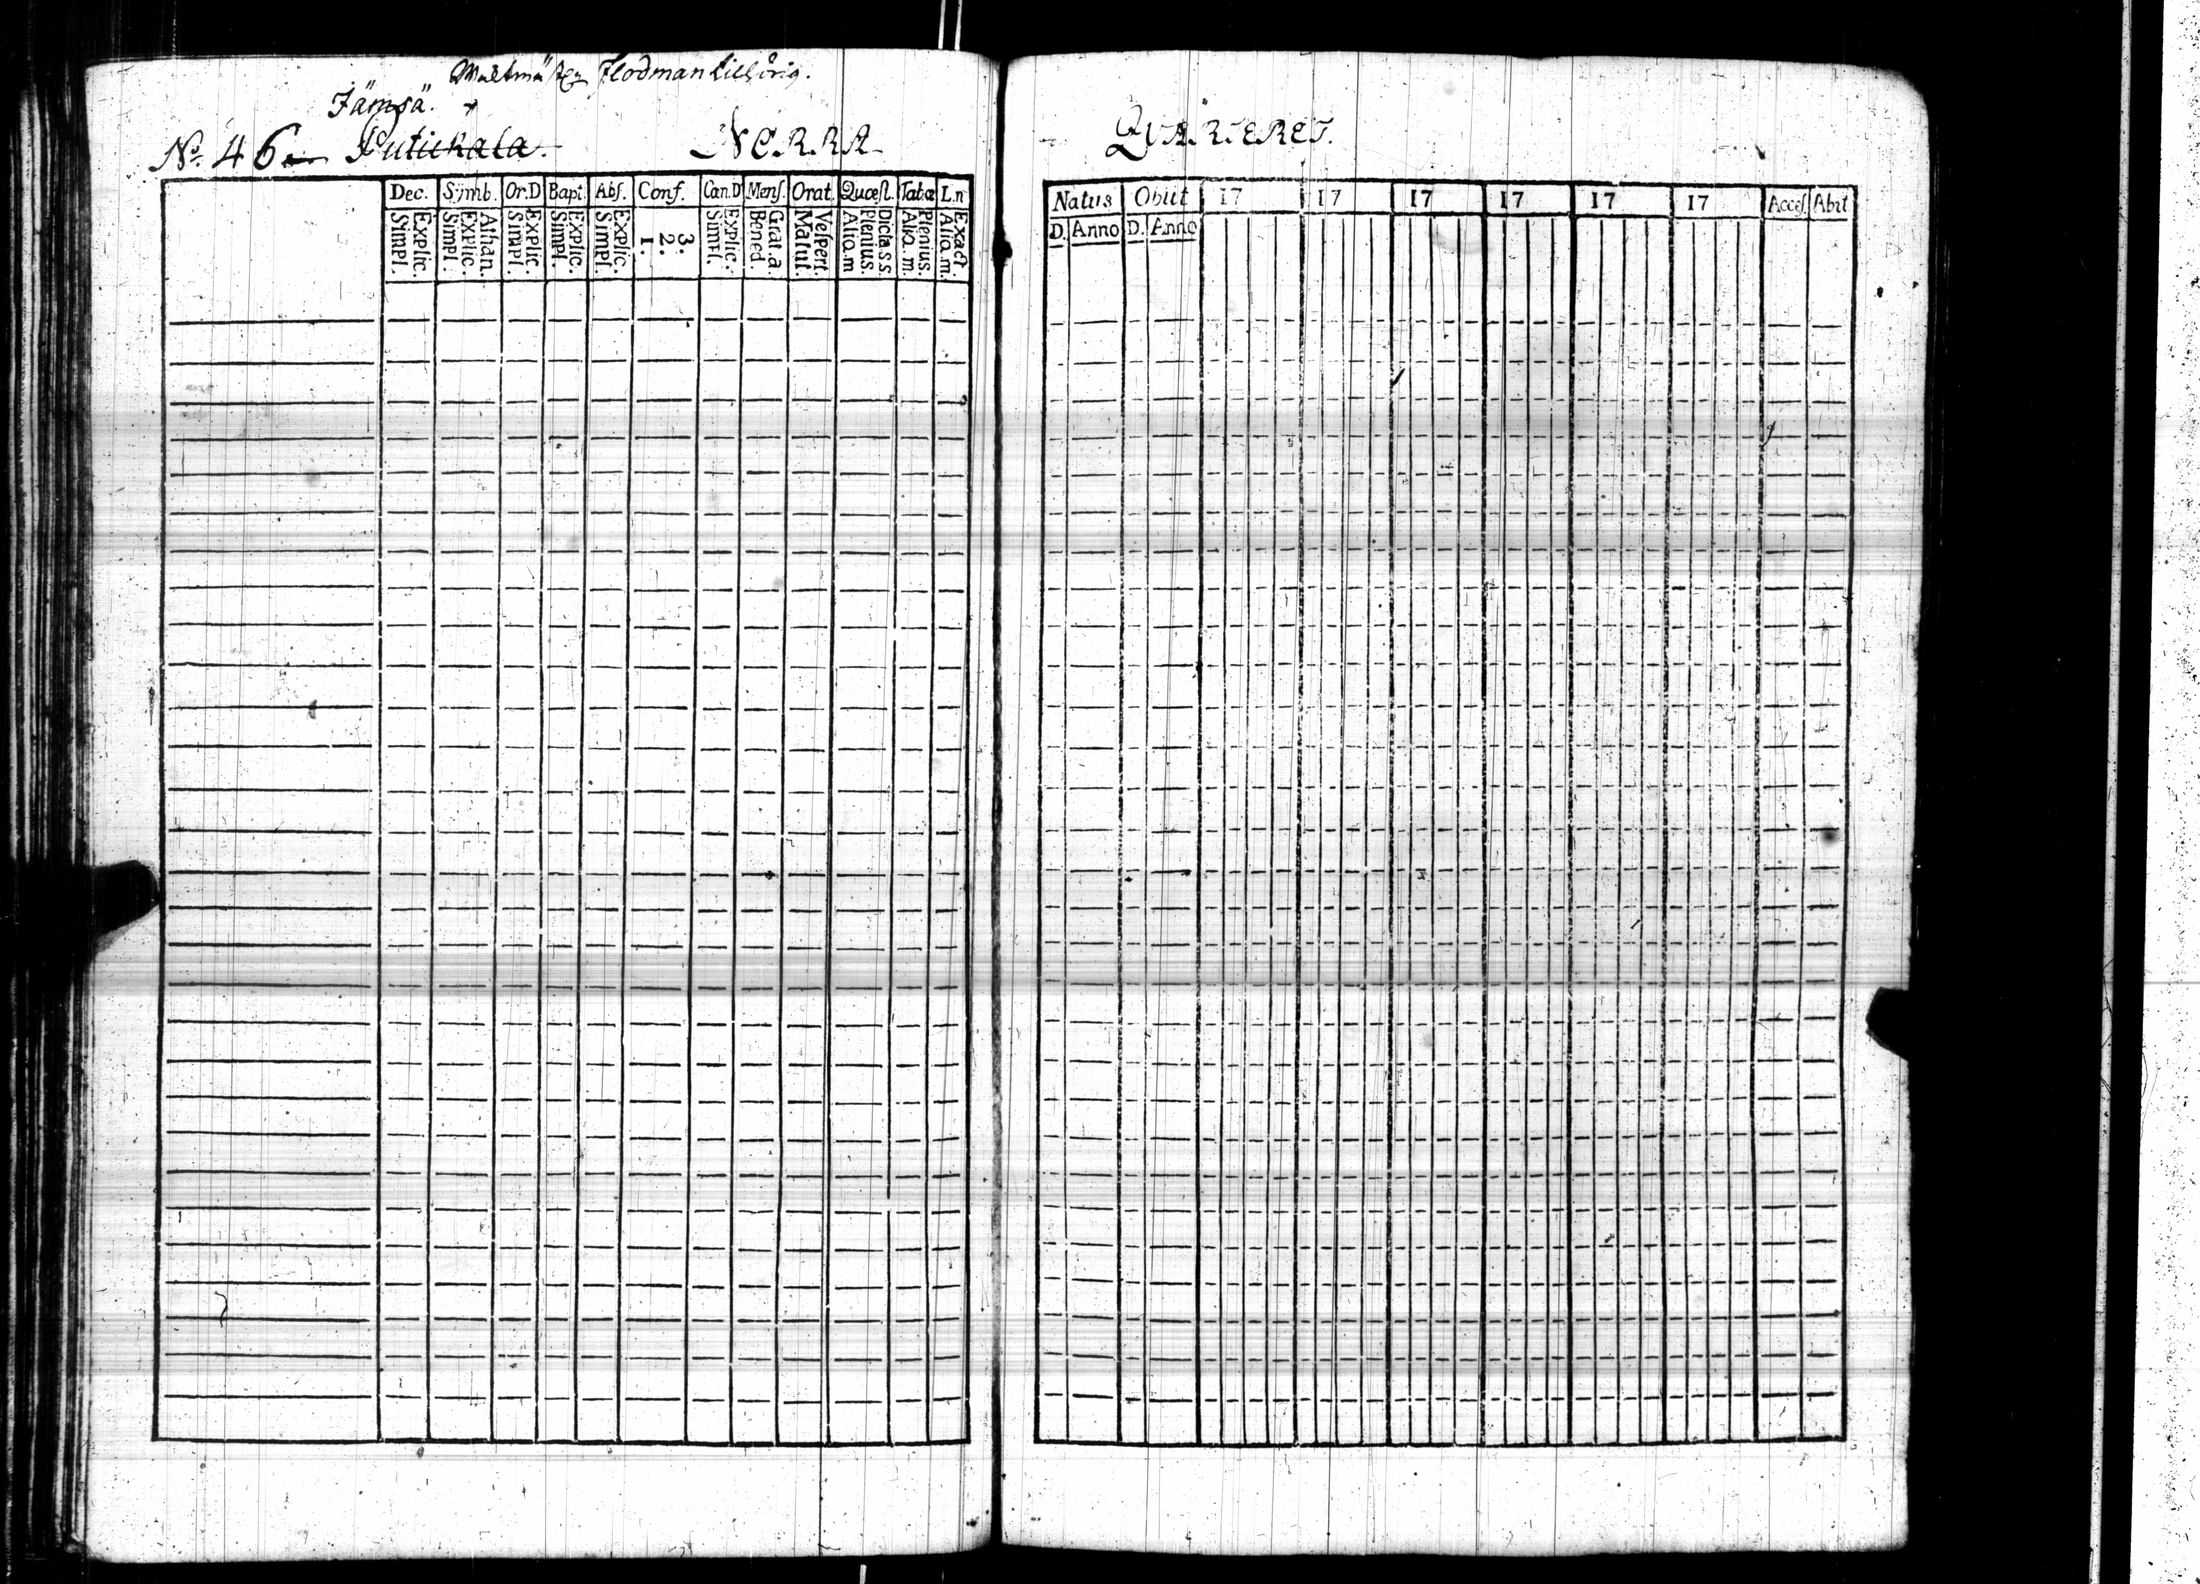 Flodman
Jämsä.
No. 46 Putickala. NERRA QVARTERET.
Dec. Sÿmb. Or.D Bapt. Abſ. Conſ. Can.D Menſ. Orat. Quœſt. Tab.œ L.n
Explic. Simpl.
Athan. Explic. Simpl.
Explic. Simpl.
Explic. Simpl.
Explic. Simpl.
3. 2. 1.
Explic. Simpl.
Grat.a. Bened.
Veſpert. Matut.
Dicta.s.s Plenius. Alio.m
Plenius. Alio.m.
Exact. Alia.m.
Natus Obiit 17 17 17 17 17 17 Acceſ. Abit
D. Anno D. Anno